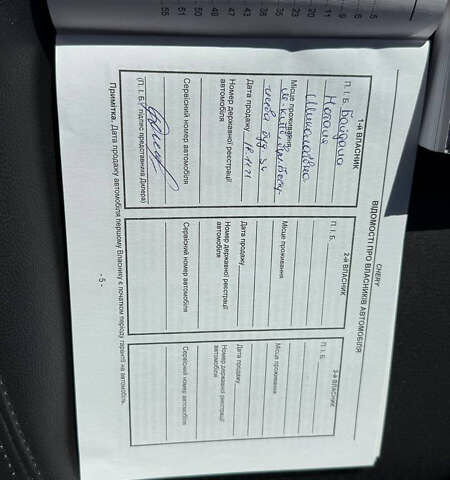 5
6
9
11
20
23
35
36
43
47
49
50
51
55
CHERY
ВІДОМОСТІ ПРО ВЛАСНИКІВ АВТОМОБІЛЯ
1-й ВЛАСНИК
П. І. Б.
Наталія
Миколаївна
Місце проживання
Дата продажу 18.11.21
Номер державної реєстрації
автомобіля
Сервісний номер автомобіля
(П. І. Б., підпис представника Дилера)
2-й ВЛАСНИК
П. І. Б.
Місце проживання
Дата продажу
Номер державної реєстрації
автомобіля
Сервісний номер автомобіля
3-й ВЛАСНИК
П. І. Б.
Місце проживання
Дата продажу
Номер державної реєстрації
автомобіля
Сервісний номер автомобіля
Примітка. Дата продажу автомобіля першому Власнику є початком періоду гарантії на автомобіль.
- 5 -